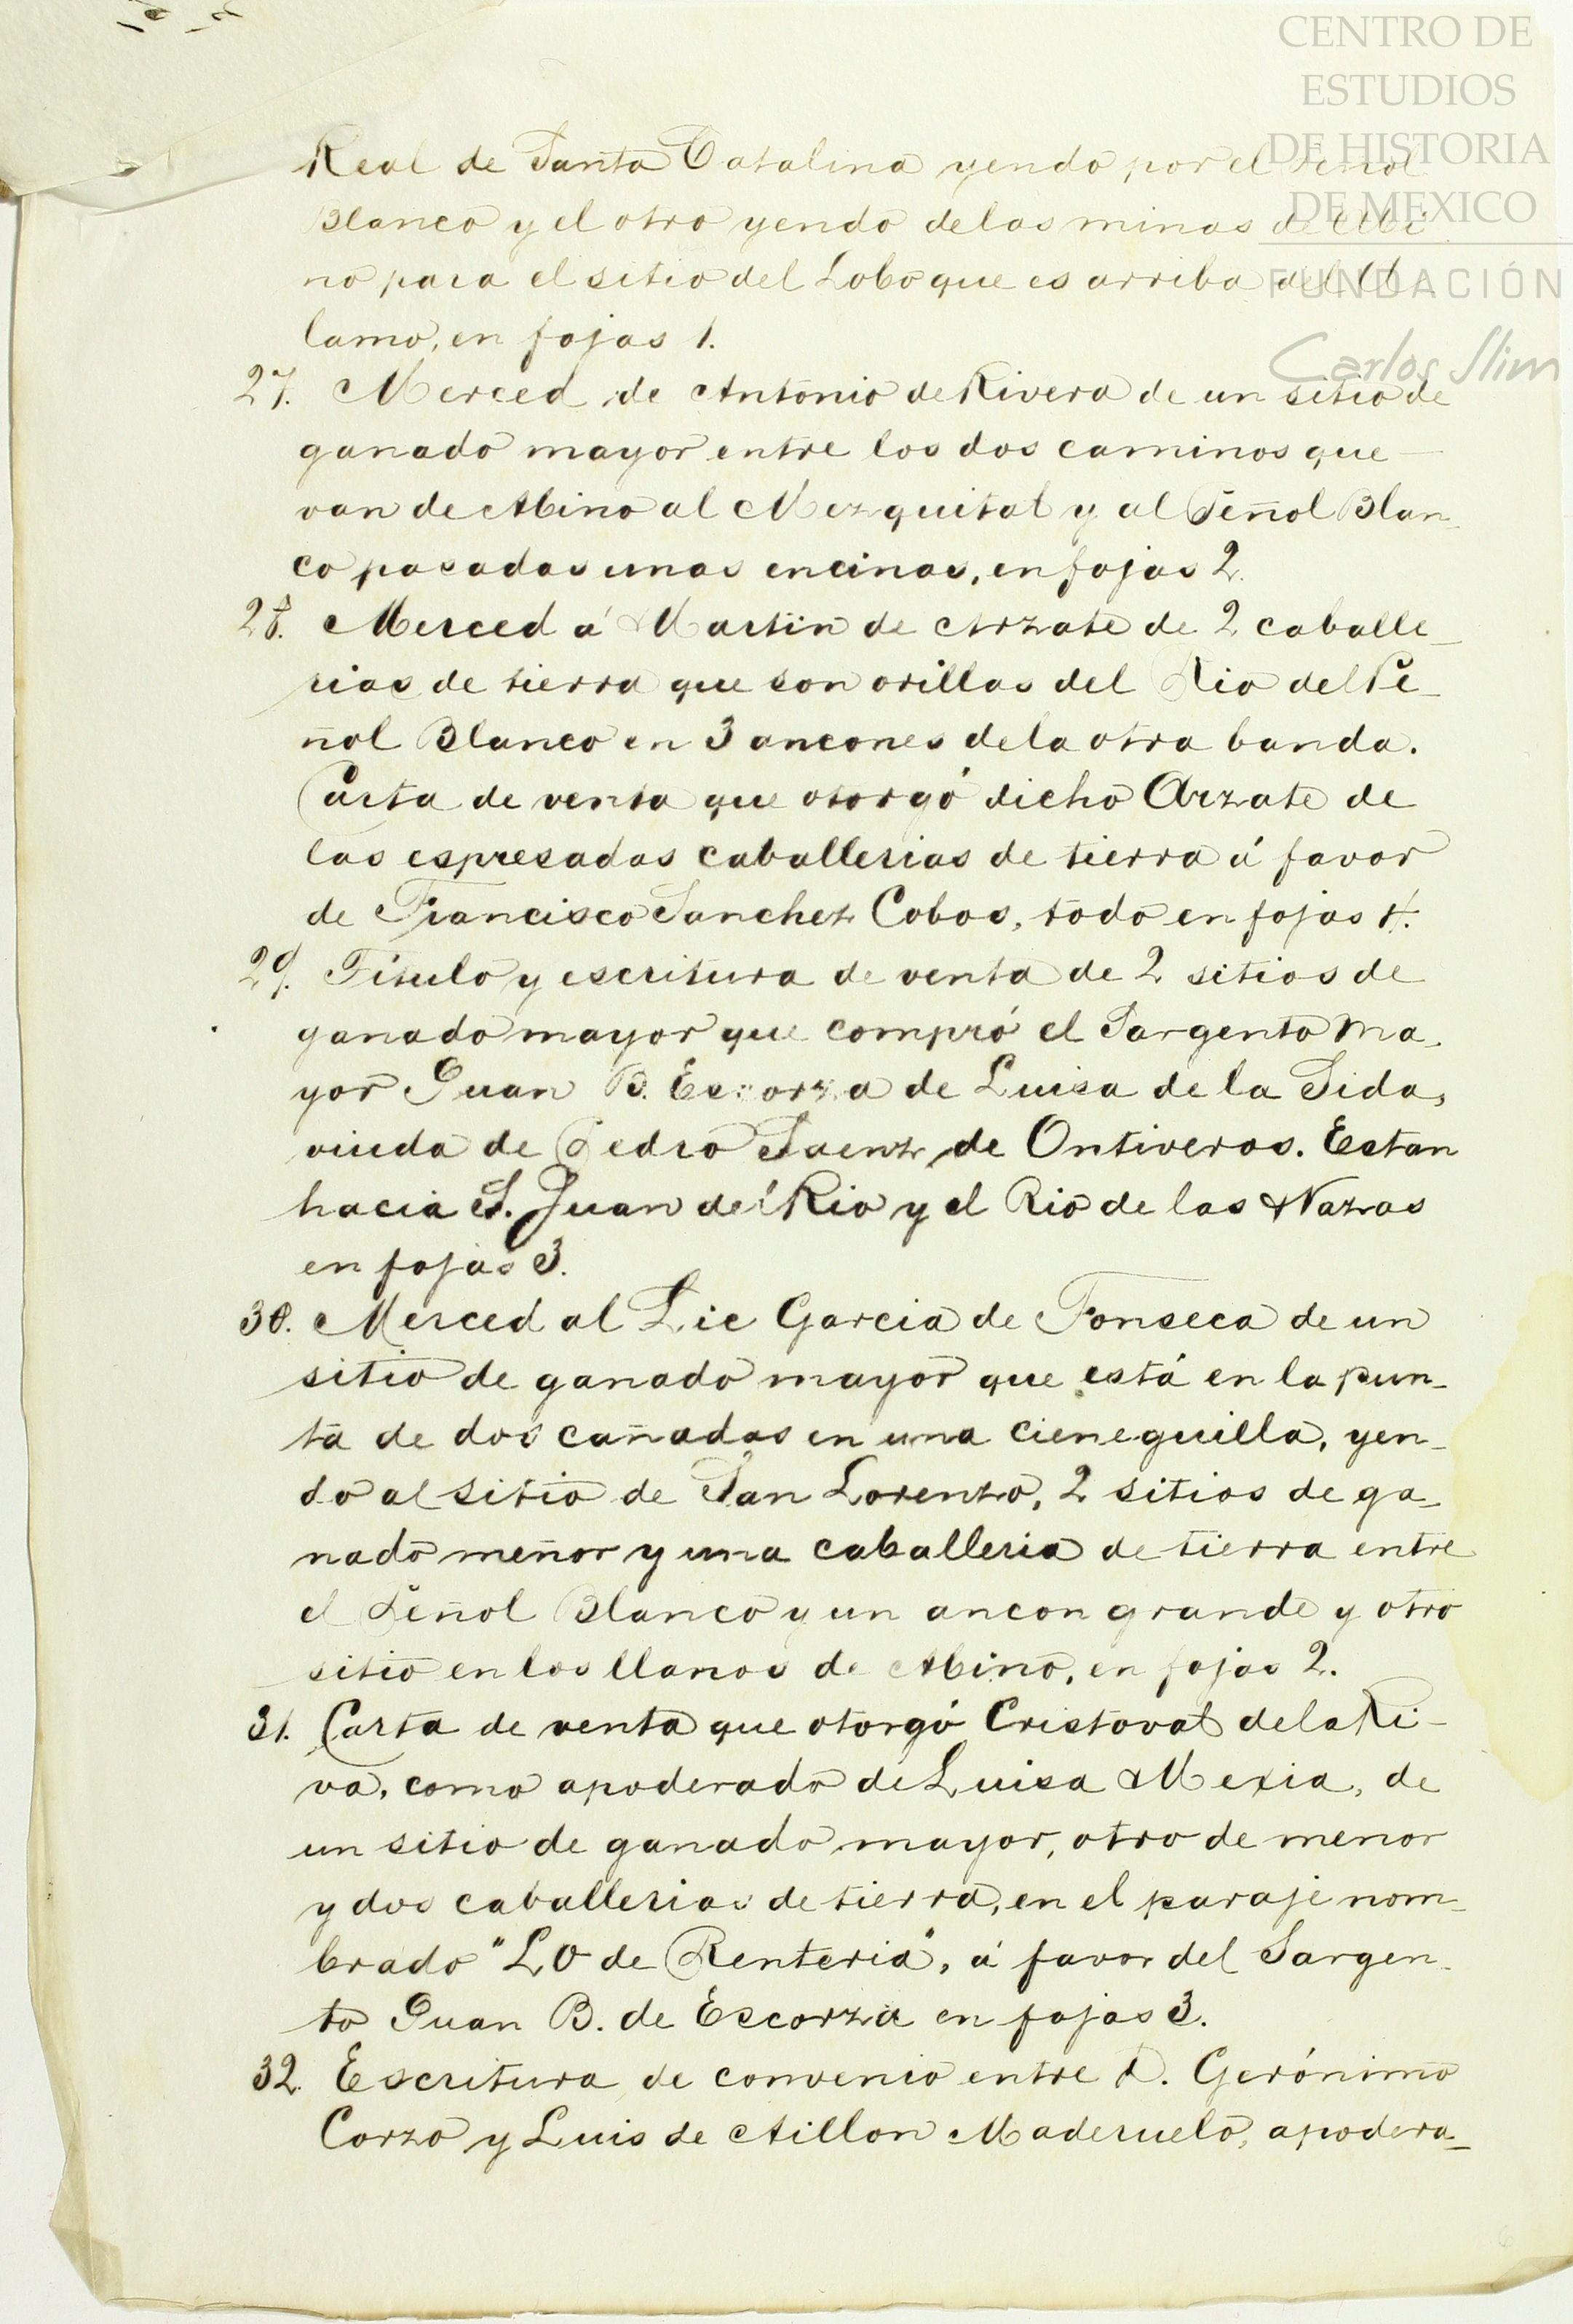 CENTRO DE
ESTUDIOS
DE HISTORIA
DE MEXICO
FUNDACIÓN
Carlos Slim
Real de Santa Catalina yendo por el Peñol
Blanco y el otro yendo de las minas de Abi
no para el sitio del Lobo que es arriba del A
lamo, en fojas 1.
27. Merced de Antonio de Rivera de un sitio de
ganado mayor entre los dos caminos que
van de Abino al Mezquital y al Peñol Blan_
co pasadas unas encinas, en fojas 2.
28. Merced á Martin de Arzate de 2 caballe_
rias de tierra que son orillas del Rio del Pe_
ñol Blanco en 3 ancones de la otra banda.
Carta de venta que otorgó dicho Arzate de
las espresadas caballerias de tierra á favor
de Francisco Sanchez Cobos, todo en fojas 4.
29. Titulo y escritura de venta de 2 sitios de
ganado mayor que compró el Sargento Ma_
yor Juan B. Escorza de Luisa de la Sida,
viuda de Pedro Saenz de Ontiveros. Estan
hacia S. Juan del Rio y el Rio de las Nazas
en fojas 3.
30. Merced al Lic Garcia de Fonseca de un
sitio de ganado mayor que está en la pun_
ta de dos cañadas en una cieneguilla, yen_
do al sitio de San Lorenzo, 2 sitios de ga_
nado menor y una caballeria de tierra entre
el Peñol Blanco y un ancon grande y otro
sitio en los llanos de Abino, en fojas 2.
31. Carta de venta que otorgó Cristoval de la Ri_
va, como apoderado de Luisa Mexia, de
un sitio de ganado mayor, otro de menor
y dos caballerias de tierra, en el paraje nom_
brado "LO de Renteria", á favor del Sargen_
to Juan B. de Escorza en fojas 3.
32. Escritura de convenio entre D. Gerónimo
Corzo y Luis de Aillon Maderuelo, apodera_